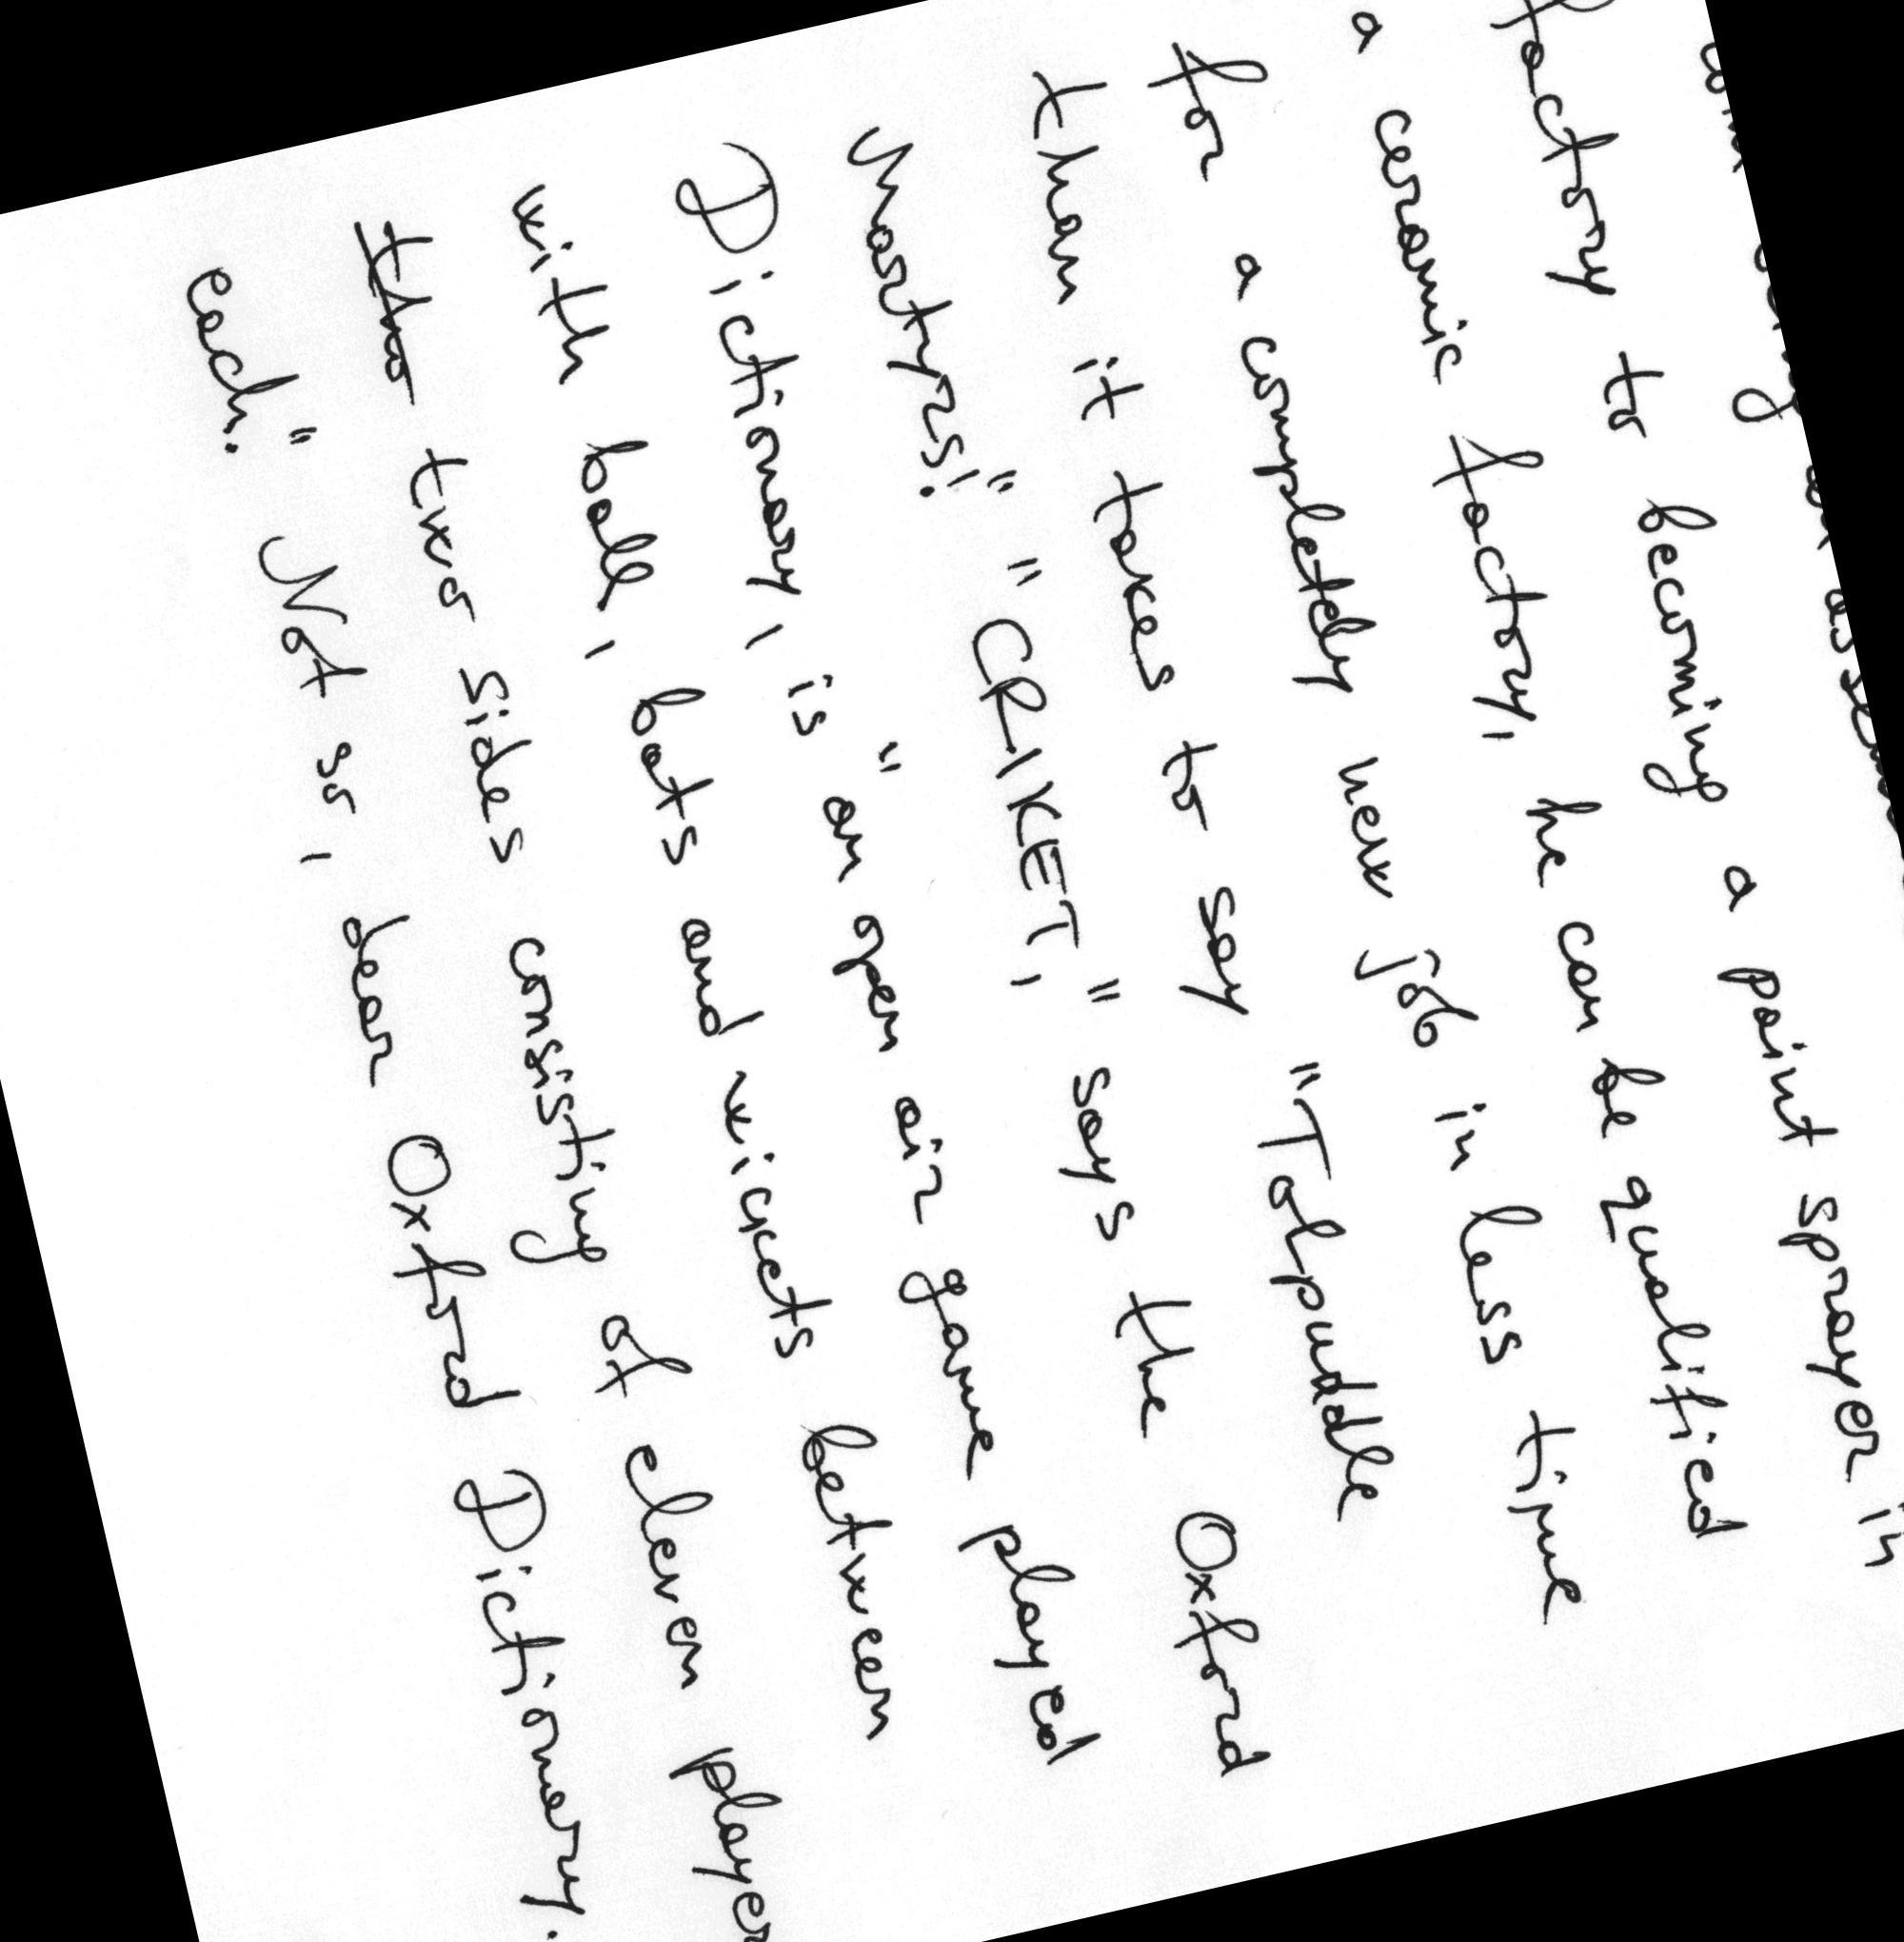 factory to becoming a paint sprayer in
a ceramic factory, he can be qualified
for a completely new job in less time
than it takes to say "Tolpuddle
Martyrs!" "CRIKET," says the Oxford
Dictionary, is "an open air game played
with ball, bats and wickets between
two sides consisting of eleven player
each." Not so, dear Oxford Dictionary.